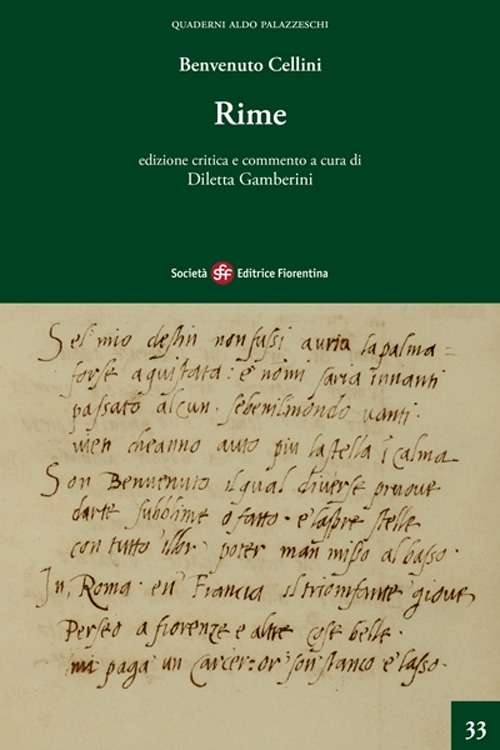 QUADERNI ALDO PALAZZESCHI
Benvenuto Cellini
Rime
edizione critica e commento a cura di
Diletta Gamberini
Società sef Editrice Fiorentina
Sel mio destin non fussi auria la palma
forse aquistata: e nomi saria innanti
passato alcun. sebenilmondo uanti.
men cheanno auto piu la stella i calma
Son Benuenuto ilqual diuerse pruoue
darte subblime o fatto. e laspre stelle
con tutto illor. poter man misso al basso.
In, Roma. en Francia il triomfante gioue,
Perseo a fiorenze e altre cose belle.
mi paga un carcer: or son stanco e lasso.
33